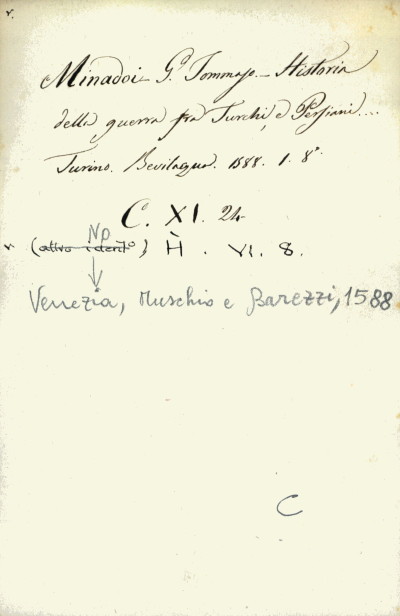 v.
Minadoi G. Tommaso. - Historia
della guerra fra Turchi, e Persiani....
Turino. Bevilaqua. 1588. 1. 8°.
C. XI. 24
No
v. (altro ident°) H. VI. 8.
Venezia, Muschio e Barezzi, 1588
C